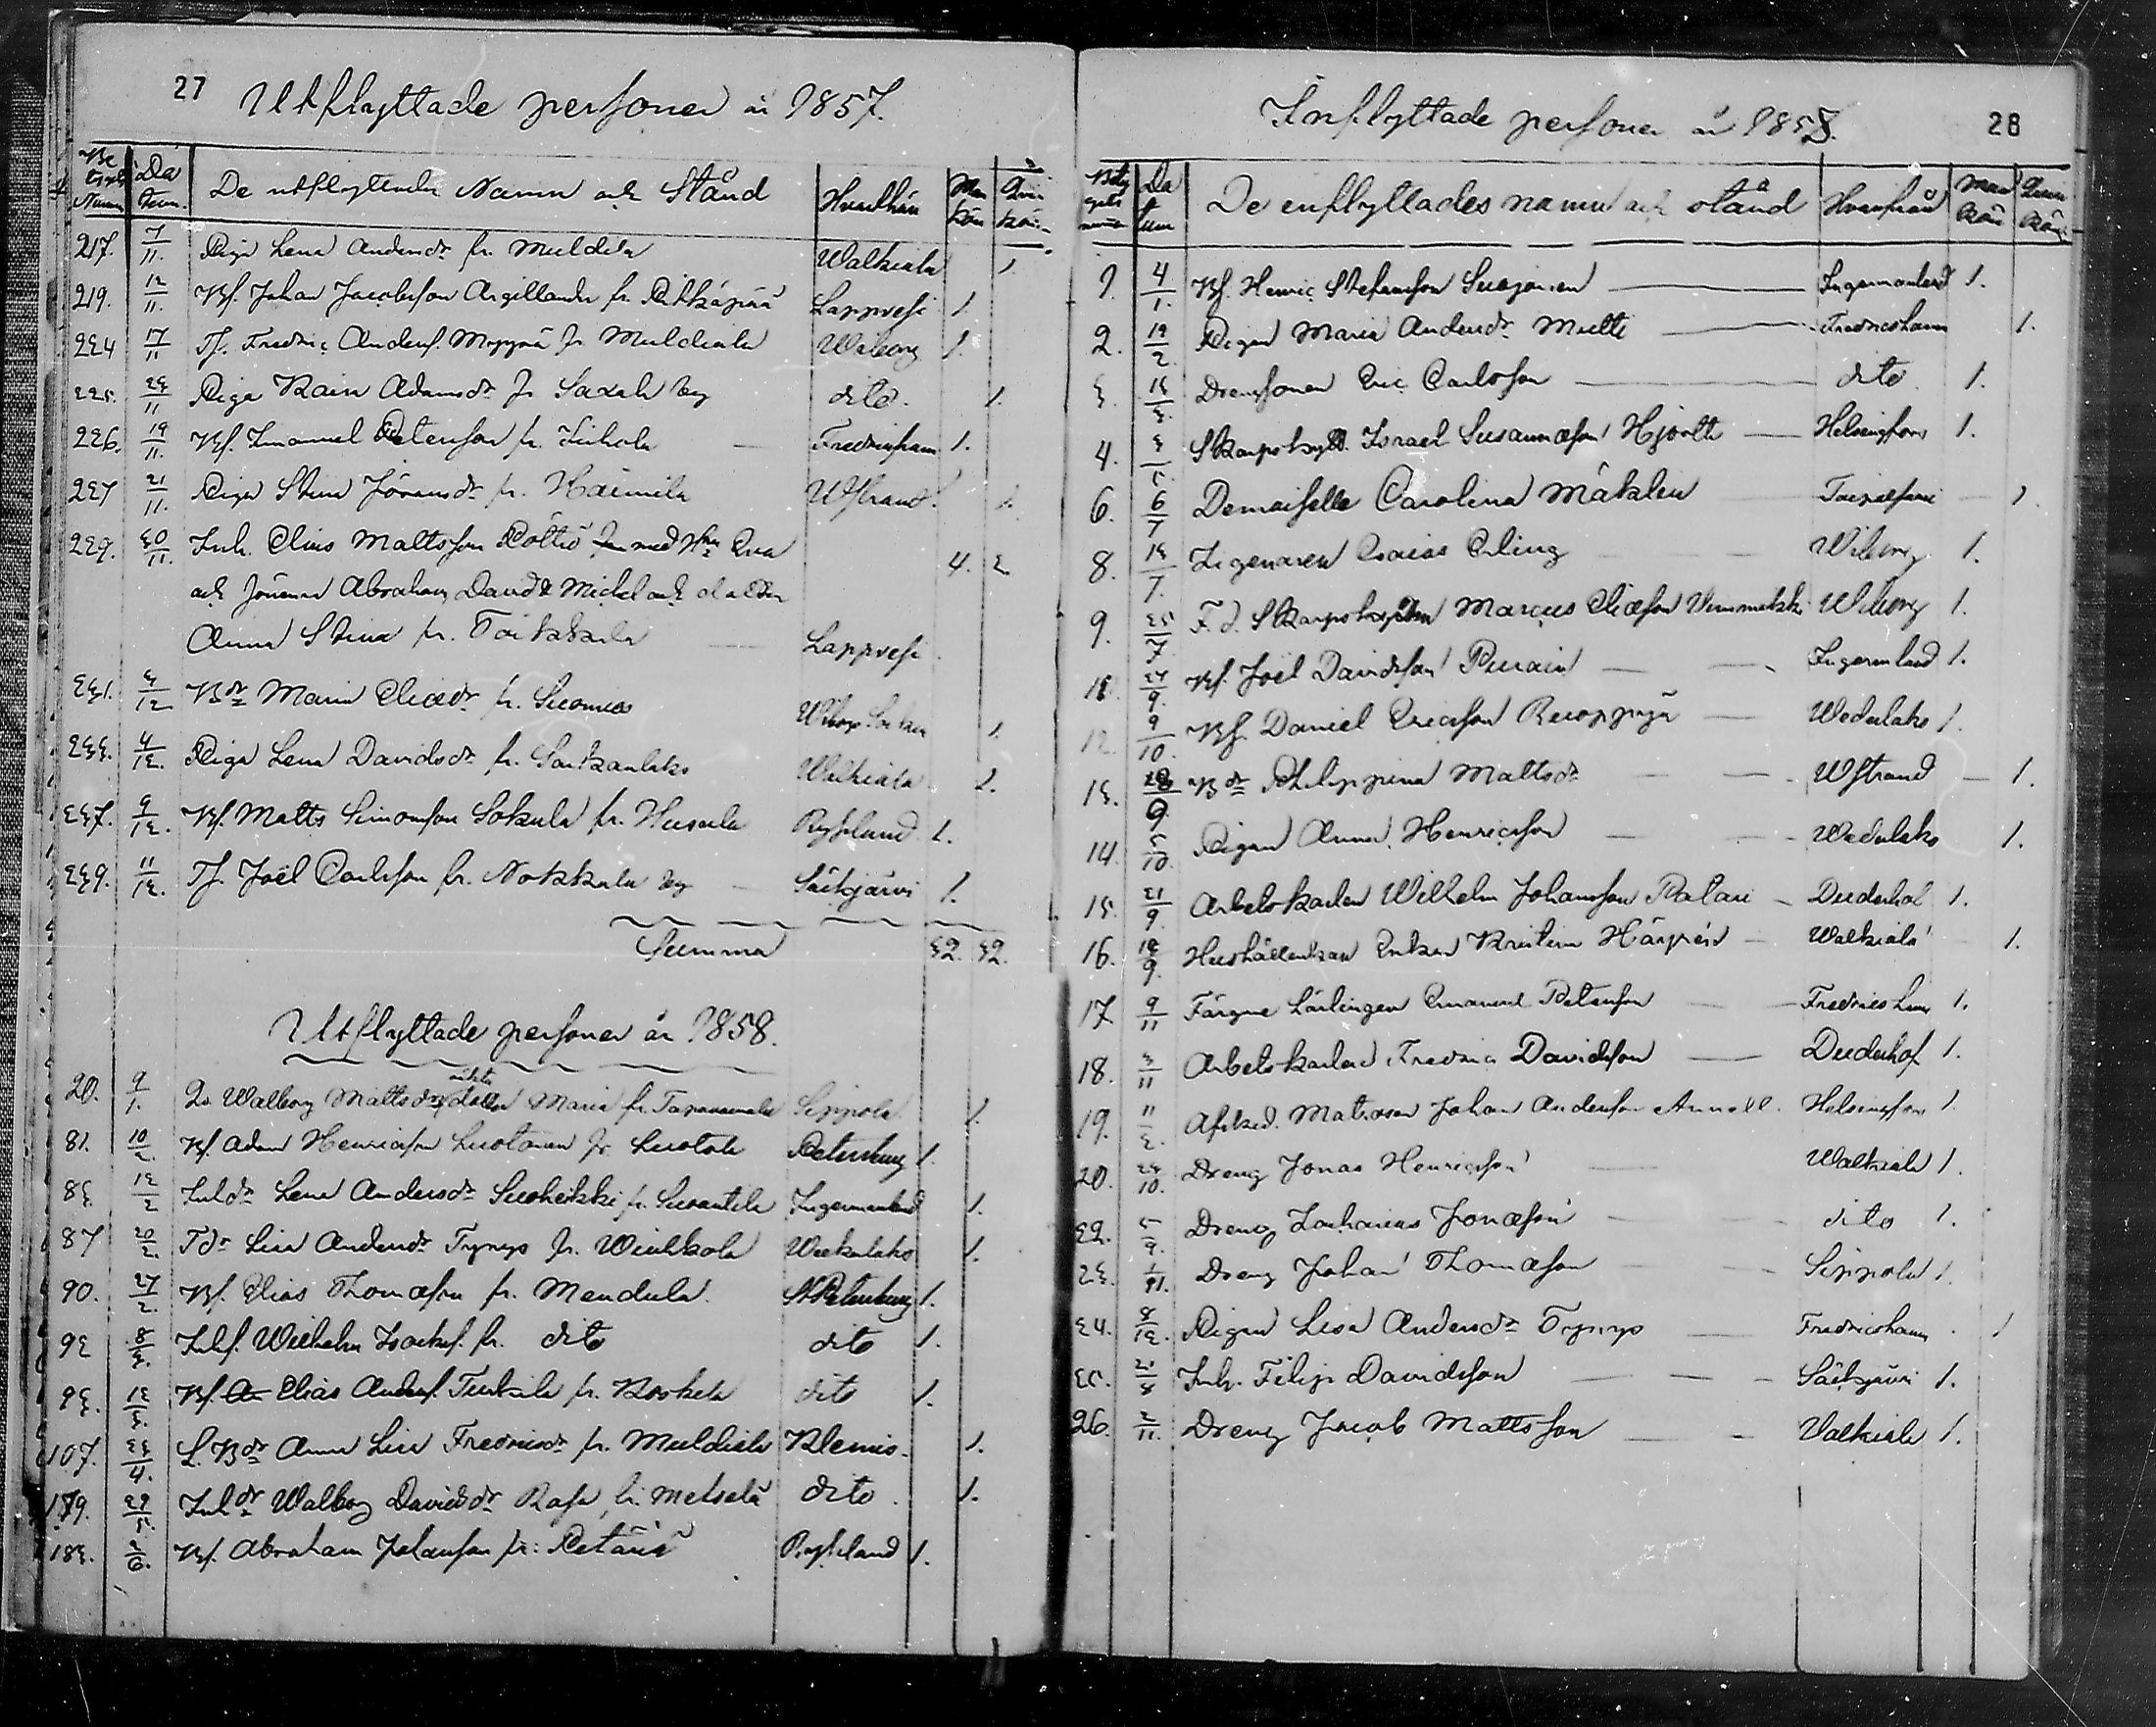 27
Utflyttade personer år 1857.
Betygets Numm Datum. De utflyttades Namn och Stånd Hvarthän Mankön Qvinkön
217. 7/11. Piga Lena Andersdr fr. Muldila Walkiala 1
219. 12/11. Bs. Johan Jacobsson Argillander fr. Pitkäpää Lappvesi 1
224 17/11 Ts. Fredric Anders. Myyrä fr. Muldiala Wiborg 1.
225. 23/11 Piga Kaisa Adamsdr fr Saxala by dito. 1.
226. 19/11. Bs. Imanuel Petersson fr. Fredricsham 1.
227 21/11. Piga Stina Jöransdr fr. Haimila Wstrand. 1.
229. 30/11. Inh. Elias Mattsson Pöltiö med Hu Eva 4. 2
och Sönerne Abraham, David & Michel och dottren
Anna Stina fr. Toikkala Lappvesi
231. 3/12 Bdr Maria Eliædr fr. Suomies Wiborgs 1.
233. 4/12. Piga Lena Davidsdr fr. Sarkanlaks Walkiala 1.
237. 9/12. Bs. Matts Simonsson Sokula fr. Husula Ryssland 1.
239. 11/12. Ts. Joël Carlsson fr. Nokkala by Säckjärvi 1.
Summa 32. 32.
Utflyttade personer år 1858.
20. 9/1. Walborg Mattsdr oäkta dotter Maria fr. Sippola 1.
81. 10/2. Bs. Adam Henricsson Luotonen fr Luotola Petersburg 1.
83. 12/2 Inhdr Lena Andersdr Suoheikki fr. Surantila Ingermanland 1.
87 20/2. Tdr Lisa Andersdr Tyrys fr. Winkkola Weckelaks 1.
90. 27/2. Bs. Elias Thomæson fr. Mendula St Petersburg 1.
92 8/3. Inhs. Wilhelm Isacks. fr. dito dito 1.
93. 13/3. Bs. Elias Anders. Turkila fr. Korkela dito 1.
107. 23/4. S. Bdr Anna Lisa Fredricsdr fr. Muldiala Klemis. 1.
179. 29/5. Inhdr Walborg Davidsdr Rasa fr. Metselä dito. 1.
183. 2/6. Bs. Abraham Johansson fr. Ryssland 1.
28
Inflyttade personer år 1858.
Betygets numer Datum De inflyttades namn och stånd Hvarifrån Mankön Qvinkön
1. 4/1. Bs. Henric Stefansson Suojanen Ingermanland 1.
2. 19/2. Pigan Maria Andersdr Multi Fredricsham 1.
3. 15/3. Drengsonen Eric Carlsson dito 1.
4. 3/5. Skarpskytt. Israel Susannæson Hjorth Helsingfors 1.
6. 6/7 Demoiselle Carolina Mäklin Taipalsaari 1.
8. 13/7. Zigenaren Esaias Erling Wiborg 1.
9. 25/7 F.d. Skarpskytten Marcus Eliæson Wiborg 1.
11. 27/9. Bs. Joël Davidsson Purain Ingermland 1.
12. 9/10. Bs. Daniel Ericsson Ruoppyä Wedulaks 1.
13. 9. Bdr Philippina Mattsdr Wstrand 1.
14. 5/10. Pigan Anna Henricsson Wedulaks 1.
15. 21/9. Arbetskarlen Wilhelm Johansson Patari Duderhof 1.
16. 12/9. Hushållerskan Enkan Kristina Härpäin Walkiala 1.
17 9/11 Färgare Lärlingen Emanuel Petersson Fredricsham 1.
18. 3/11 Arbetskarlen Fredric Davidsson Duderhof 1.
19. 11/2. Afsked. Matrosen Johan Andersson Annell. Helsingfors 1.
20. 23/10. Dreng Jonas Henricsson Walkiala 1.
22. 5/9. Dreng Zacharias Jonæson dito 1.
23. 1/11. Dreng Johan Thomæson Sippola 1.
24. 8/12. Pigan Lisa Andersdr Tyrys Fredricsham 1
25. 21/8 Inh. Filip Davidsson Säckjärvi 1.
26. 2/11. Dreng Jacob Mattsson Valkiala 1.